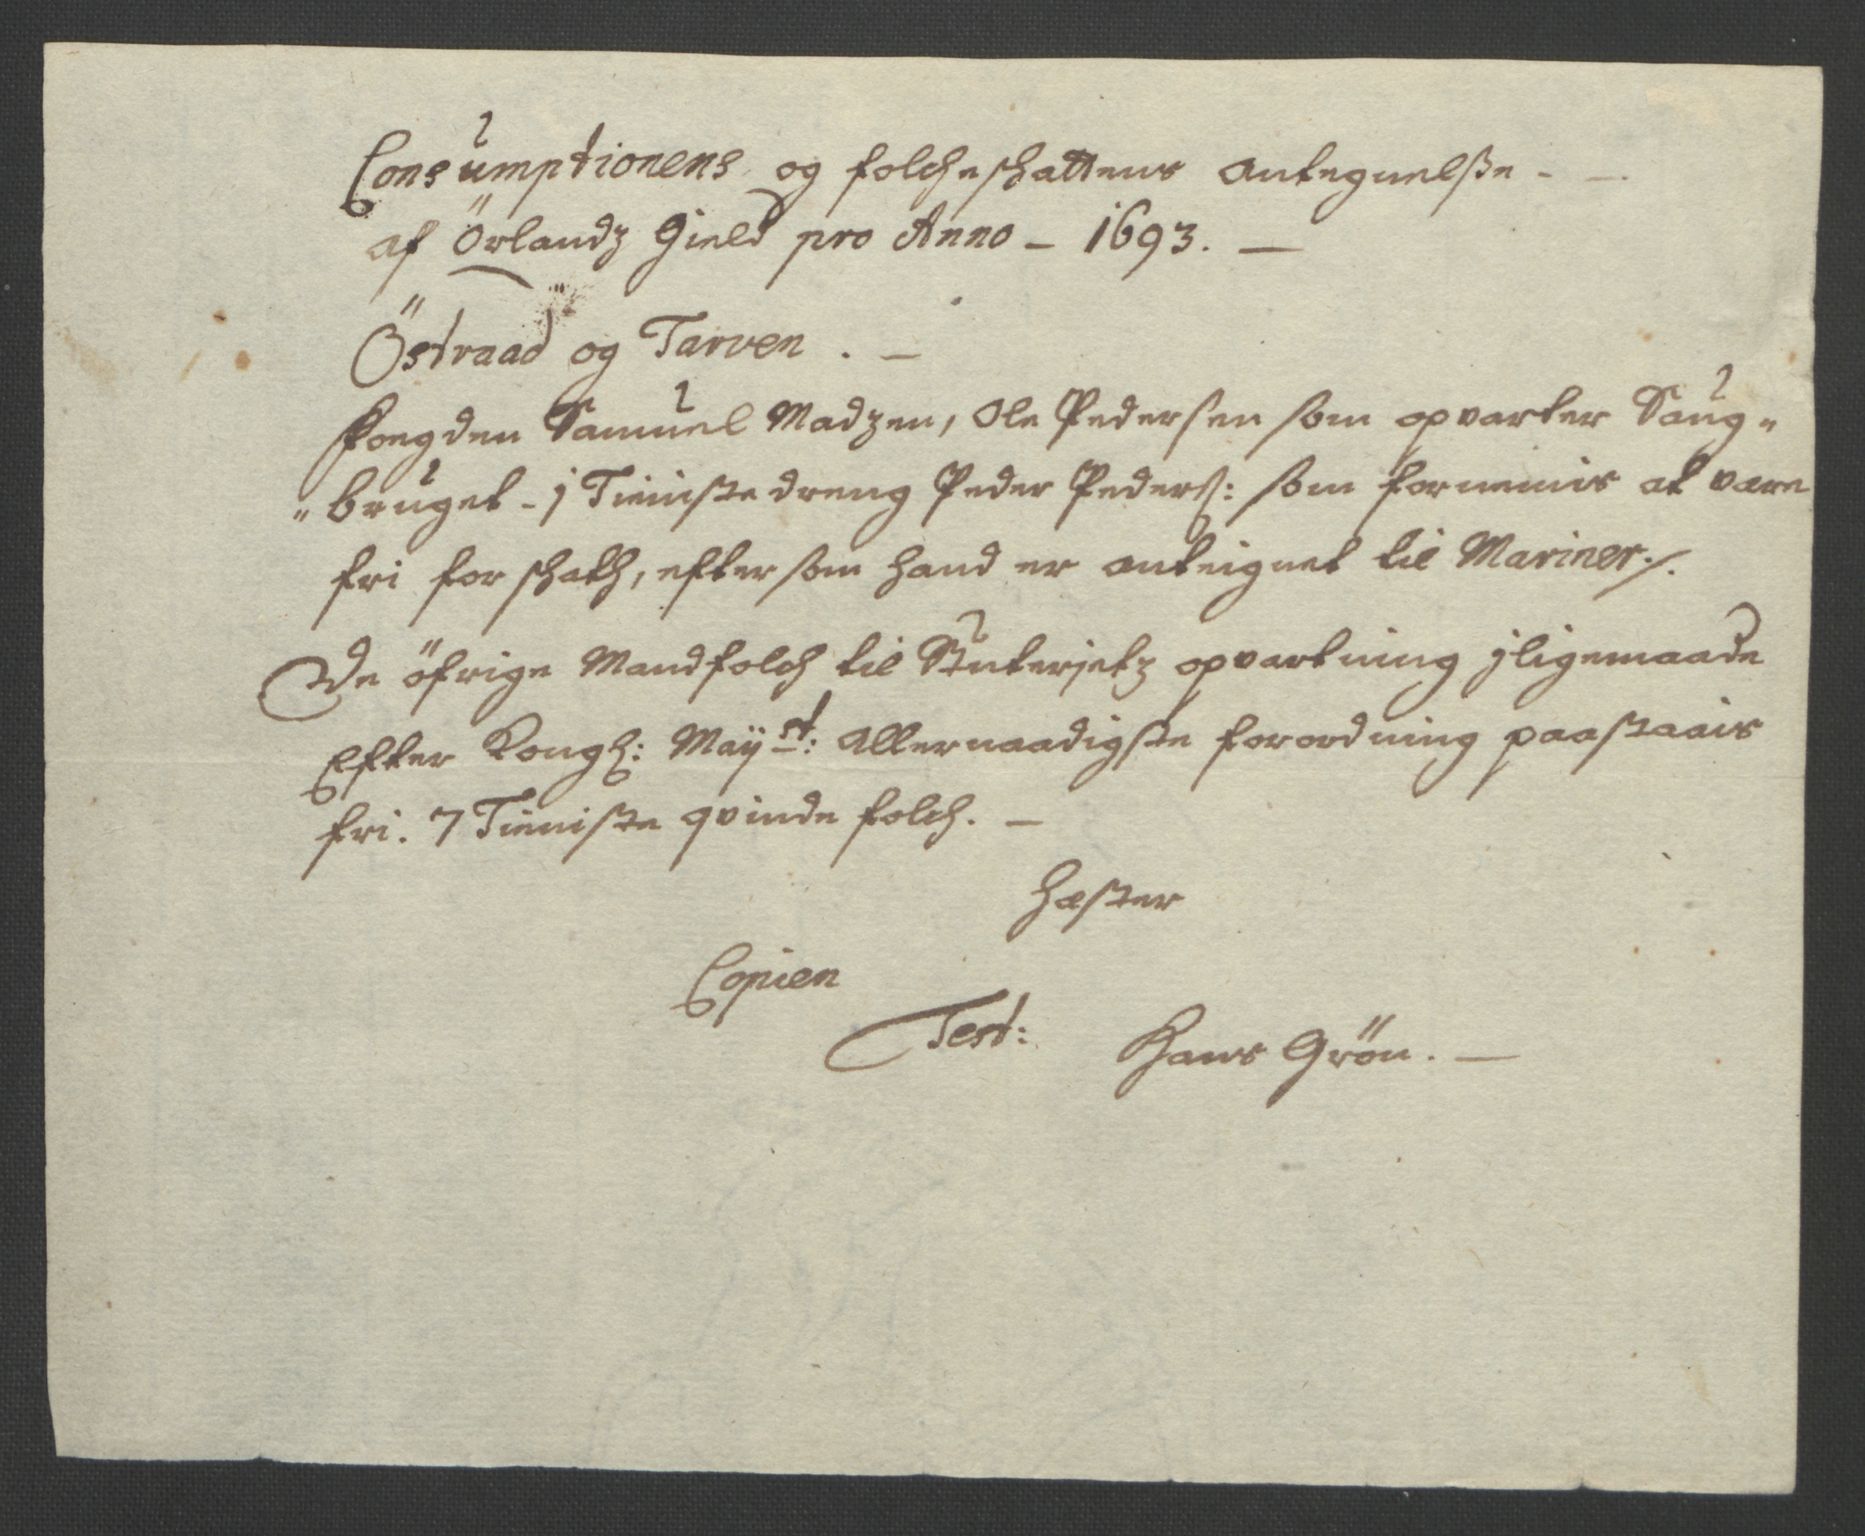 Consumptionens og folcheschattens Antegnelsse - -
af Örlandz Gield pro Anno - 1693. -
Östraad og Tarven . -
Fougden Samuel Madzen, Ole Pedersen som opvarter Saug-
bruget - 1 Tieniste dreng Peder Peders: som fornemis at være
fri for schath, eftersom hand er anteignet til Mariner ./.
De öfrige Mandfolch til Stuterjetz opvartning jligemaade
Efter Kongl: Mayst: Allernaadigste forordning paastaais
fri. 7 Tieniste qvinde folch. -
Hæster
Copien
Test: Hans Grön. -